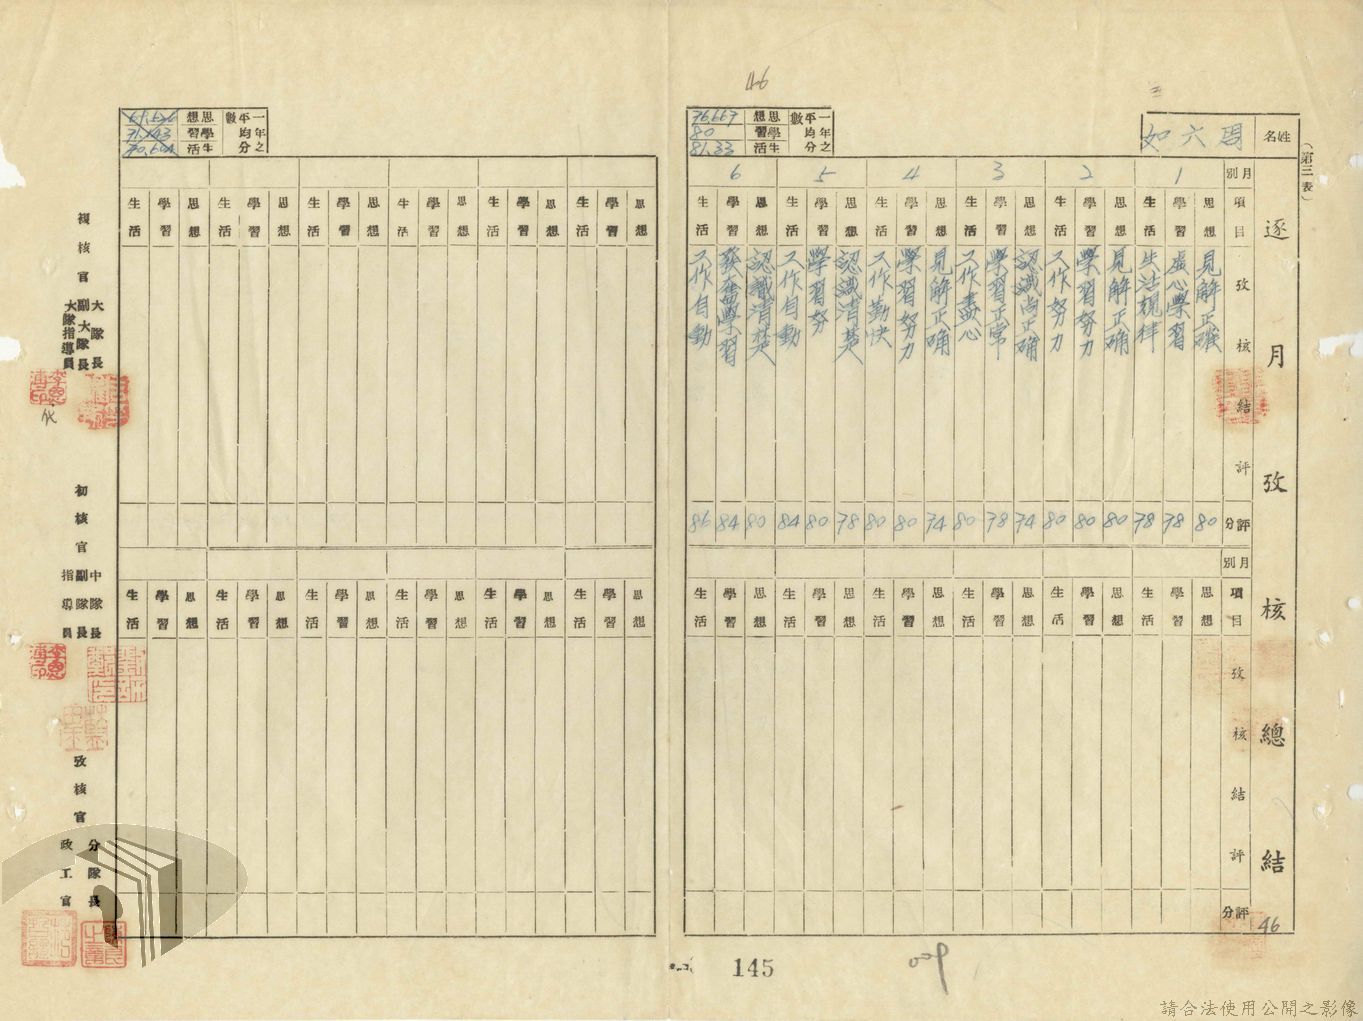 46
三
（第三表）
姓名 周六如
逐月攷核總結
一年之平均分數
思想 76.667
學習 80
生活 81.33
月別 1 2 3 4 5 6
項目 思想 學習 生活 思想 學習 生活 思想 學習 生活 思想 學習 生活 思想 學習 生活 思想 學習 生活
攷核結評
見解正確
虛心學習
生活規律
見解正确
學習努力
工作努力
認識尚正确
學習正常
工作盡心
見解正确
學習努力
工作勤快
認識清楚
學習努
工作自動
認識清楚
發奮學習
工作自動
評分 80 78 78 80 80 80 74 78 80 74 80 80 78 80 84 80 84 86
月別
項目 思想 學習 生活 思想 學習 生活 思想 學習 生活 思想 學習 生活 思想 學習 生活 思想 學習 生活
攷核結評
評分
46
一年之平均分數
思想
學習 71.143
生活 70.604
思想 學習 生活 思想 學習 生活 思想 學習 生活 思想 學習 生活 思想 學習 生活 思想 學習 生活
思想 學習 生活 思想 學習 生活 思想 學習 生活 思想 學習 生活 思想 學習 生活 思想 學習 生活
複核官 大隊長
副大隊長
大隊指導員
初核官 中隊長
副隊長
指導員
攷核官 分隊長
政工官
145
請合法使用公開之影像